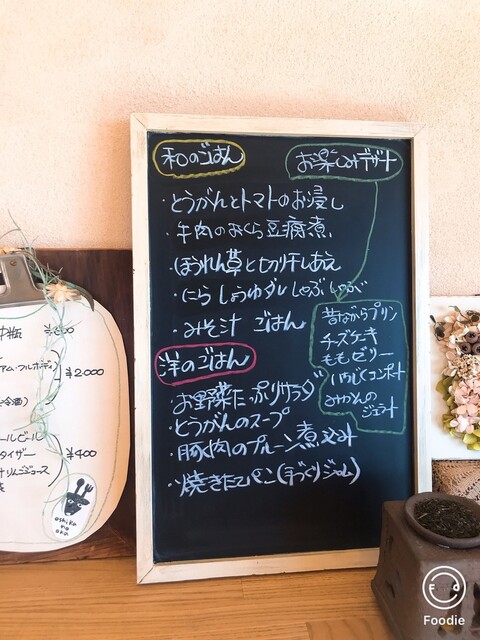 和のごはん
・とうがんとトマトのお浸し
・牛肉のおくら豆腐煮
・ほうれん草と切り干しあえ
・にら しょうゆダレ しゃぶしゃぶ
・みそ汁 ごはん
洋のごはん
・お野菜たっぷりサラダ
・とうがんのスープ
・豚肉のプルーン煮込み
・焼きたてパン(手づくりジャム)
お楽しみデザート
昔ながらプリン
チーズケーキ
ももゼリー
いちじくコンポート
みかんの
ジェラート
中瓶
アム・フルボディ
¥2000
冷酒)
ールビール
タイザー
¥400
りんごジュース
oshika
no
oka
Foodie